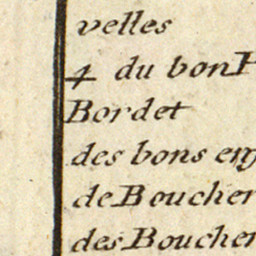 velles
4 du bon
Bordet
des bons
de Boucher
des Boucher